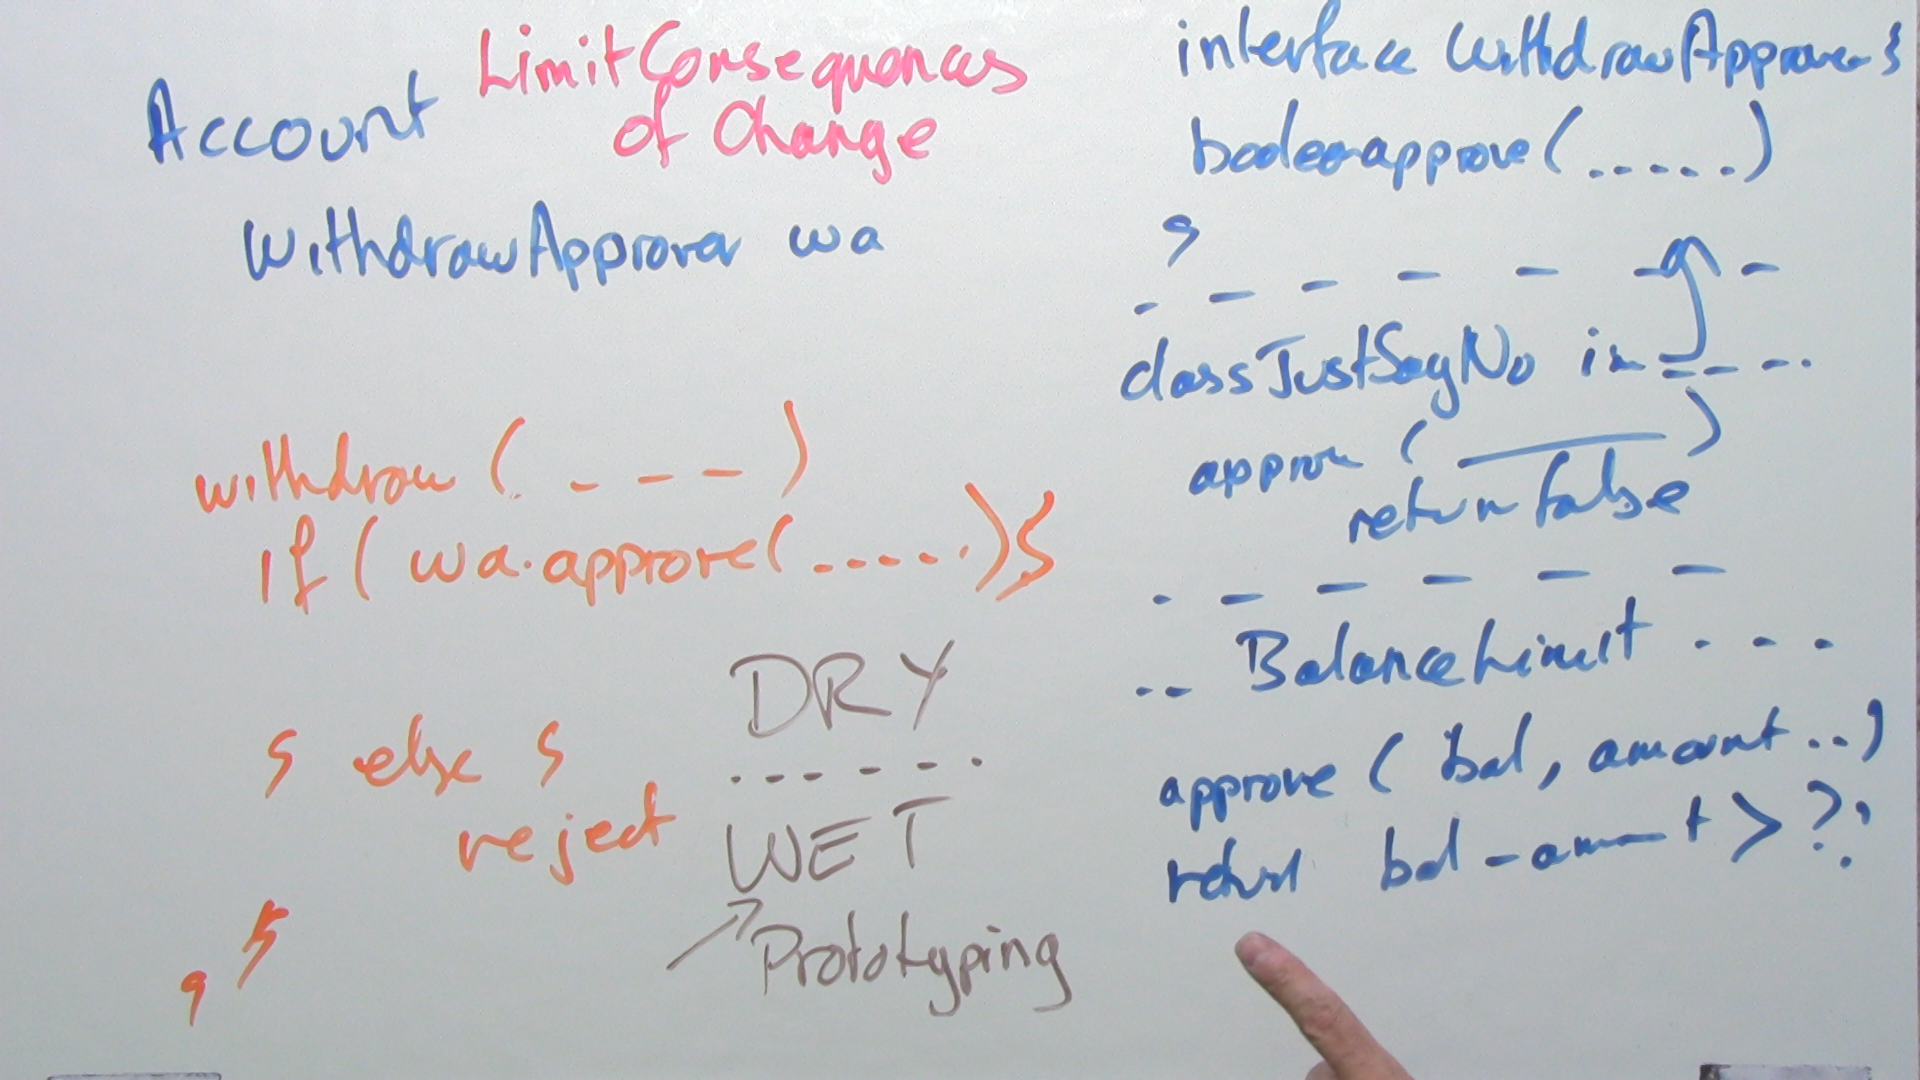 Limit Consequences
of Change
Account
WithdrawApprover wa
withdraw ( - - - )
if ( wa.approve( ..... ) ) {
} else {
reject
}
}
DRY
------
WET
Prototyping
interface WithdrawApprover {
boolean approve ( ..... )
}
- - - - - - -
class JustSayNo im - - - .
approve ( )
return false
- - - - - -
-- BalanceLimit ...
approve ( bal, amount .. )
return bal - amount > ?;